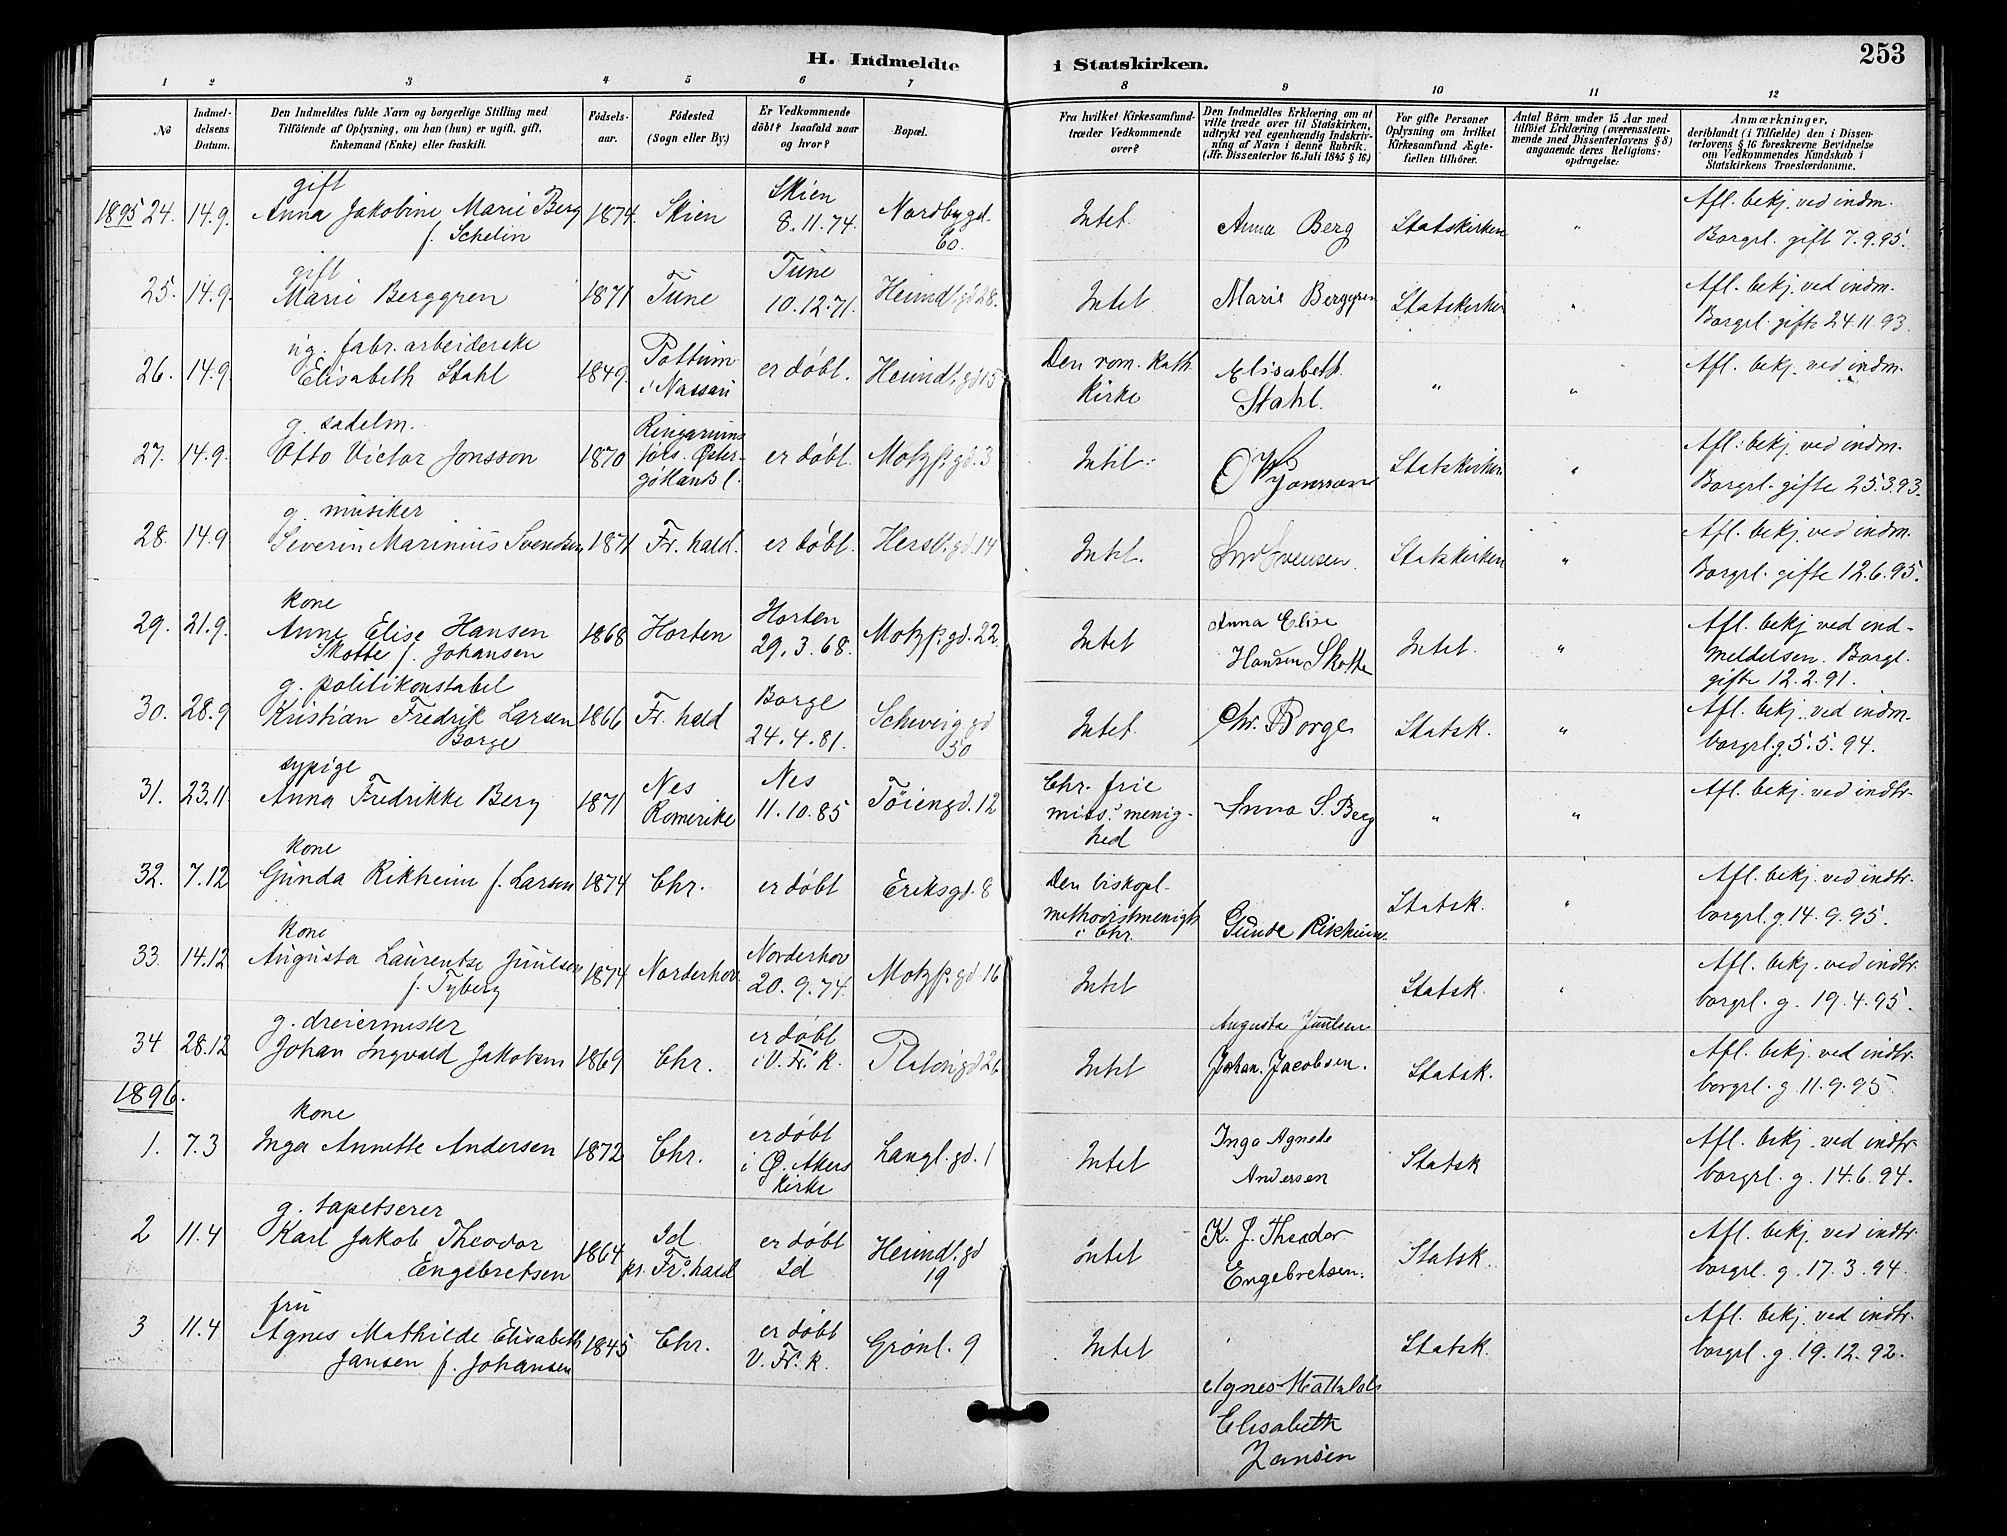 H. Indmeldte i Statskirken.
253
1 2 3 4 5 6 7 8 9 10 11 12
No
Indmel-
delsens
Datum.
Den Indmeldtes fulde Navn og borgerlige Stilling med
Tilföiende af Oplysning, om han (hun) er ugift, gift,
Enkemand (Enke) eller fraskilt.
Födsels-
aar.
Födested
(Sogn eller By.)
Er Vedkommende
döbt? Isaafald naar
og hvor?
Bopæl.
Fra hvilket Kirkesamfund
træder Vedkommende
over?
Den Indmeldtes Erklæring om at
ville træde over til Statskirken,
udtrykt ved egenhændig Indskriv-
ning af Navn i denne Rubrik.
(Jfr. Dissenterlov 16. Juli 1845 § 16)
For gifte Personer
Oplysning om hvilket
Kirkesamfund Ægte-
fællen tilhörer.
Antal Börn under 15 Aar med
tilföiet Erklæring (overensstem-
mende med Dissenterlovens § 8)
angaaende deres Religions-
opdragelse:
Anmærkninger,
deriblandt (i Tilfælde) den i Dissen-
terlovens § 16 foreskrevne Bevidnelse
om Vedkommendes Kundskab i
Statskirkens Troeslærdomme.
1895 24. 14.9.
gift
Anna Jakobine Marie Berg
f. Schelin
1874.
Skien
Skien
8.11.74.
Nordbygd.
60.
Intet.
Anna Berg
Statskirken
"
Afl. bekj. ved indm.
Borgrl. gift 7.9.95.
25. 14.9.
gift
Marie Berggren
1871
Tune
Tune
10.12.71.
Heimdl.gd 28.
Intet.
Marie Berggren
Statskirken
"
Afl. bekj. ved indm.
Borgrl. gifte 24.11.93.
26. 14.9.
ug. fabr. arbeiderske
Elisabeth Stahl
1849.
Pottum
i Nassau
er döbt.
Heimdl.gd 15
Den rom. kath.
Kirke
Elisabeth
Stahl.
"
"
Afl. bekj. ved indm.
27. 14.9.
g. sadelm.
Otto Victor Jonsson
1870
Ringarums
fors. Öster-
götlands l.
er döbt.
Motzf.gd. 3
Intet.
O V Jonsson
Statskirken
"
Afl. bekj. ved indm.
Borgrl. gifte 25.3.93.
28. 14.9.
g. musiker
Severin Marinius Svendsen
1871
Fr. hald.
er döbt.
Hersl.gd. 14
Intet.
Statskirken
"
Afl. bekj. ved indm.
Borgrl. gifte 12.6.95.
29. 21.9.
kone
Anne Elise Hansen
Skotte f. Johansen
1868
Horten
Horten
29.3.68.
Motzf.gd. 22
Intet
Anna Elise
Hansen Skotte
Intet.
"
Afl. bekj ved ind-
meldelsen. Borgl.
gifte 12.2.91.
30. 28.9
g. politikonstabel
Kristian Fredrik Larsen
Borge
1866
Fr. hald
Borge
24.4.81.
Schweig.gd
50
Intet.
Chr. Borge
Statsk.
"
Afl. bekj. ved indm.
borgrl.g 5.5.94.
31. 23.11
sypige
Anna Fredrikke Berg
1871
Nes
Romerike
Nes
11.10.85
Töiengd. 12
Chr. frie
miss. menig-
hed
Anna S. Berg
"
"
Afl. bekj. ved indtr.
32. 7.12
kone
Gunda Rikheim f. Larsen
1874
Chr.
er döbt
Eriksgd. 8
Den biskopl.
methodistmenigh
i Chr.
Gunda Rikheim.
Statsk.
"
Afl. bekj. ved indtr.
borgrl. g. 14.9.95.
33. 14.12
kone
Augusta Laurentse Juulsen
f. Tyberg
1874
Norderhov
Norderhov
20.9.74.
Motzf.gd 16
Intet
Augusta Juulsen
Statsk.
Afl. bekj. ved indtr.
borgrl. g. 19.4.95.
34 28.12
g. dreiermester
Johan Ingvald Jakobsen
1869
Chr.
er döbt
i V. Fr. k.
Platougd 26
Intet
Johan. Jacobsen.
Statsk.
Afl. bekj. ved indtr.
borgrl. g 11.9.95.
1896.
1. 7.3
kone
Inga Annette Andersen
1872
Chr.
er döbt
i Ö. Akers
kirke
Langl.gd. 1
Intet
Inga Agnede
Andersen
Statsk
Afl. bekj. ved indtr.
borgrl. g. 14.6.94.
2 11.4
g. tapetserer
Karl Jakob Theodor
Engebretsen
1864
Id
pr. Fr. hald
er döbt
Id
Heimdl.gd
19
Intet
K. J. Theodor
Engebretsen.
Statsk.
Afl. bekj. ved indtr.
borgrl. g. 17.3.94.
3 11.4
fru
Agnes Mathilde Elisabeth
Jansen f. Johansen
1845
Chr.
er döbt
V. Fr. k.
Grönl. 9
Intet
Agnes Mathilde
Elisabeth
Jansen
Statsk.
Afl. bekj. ved indtr.
borgrl. g. 19.12.92.